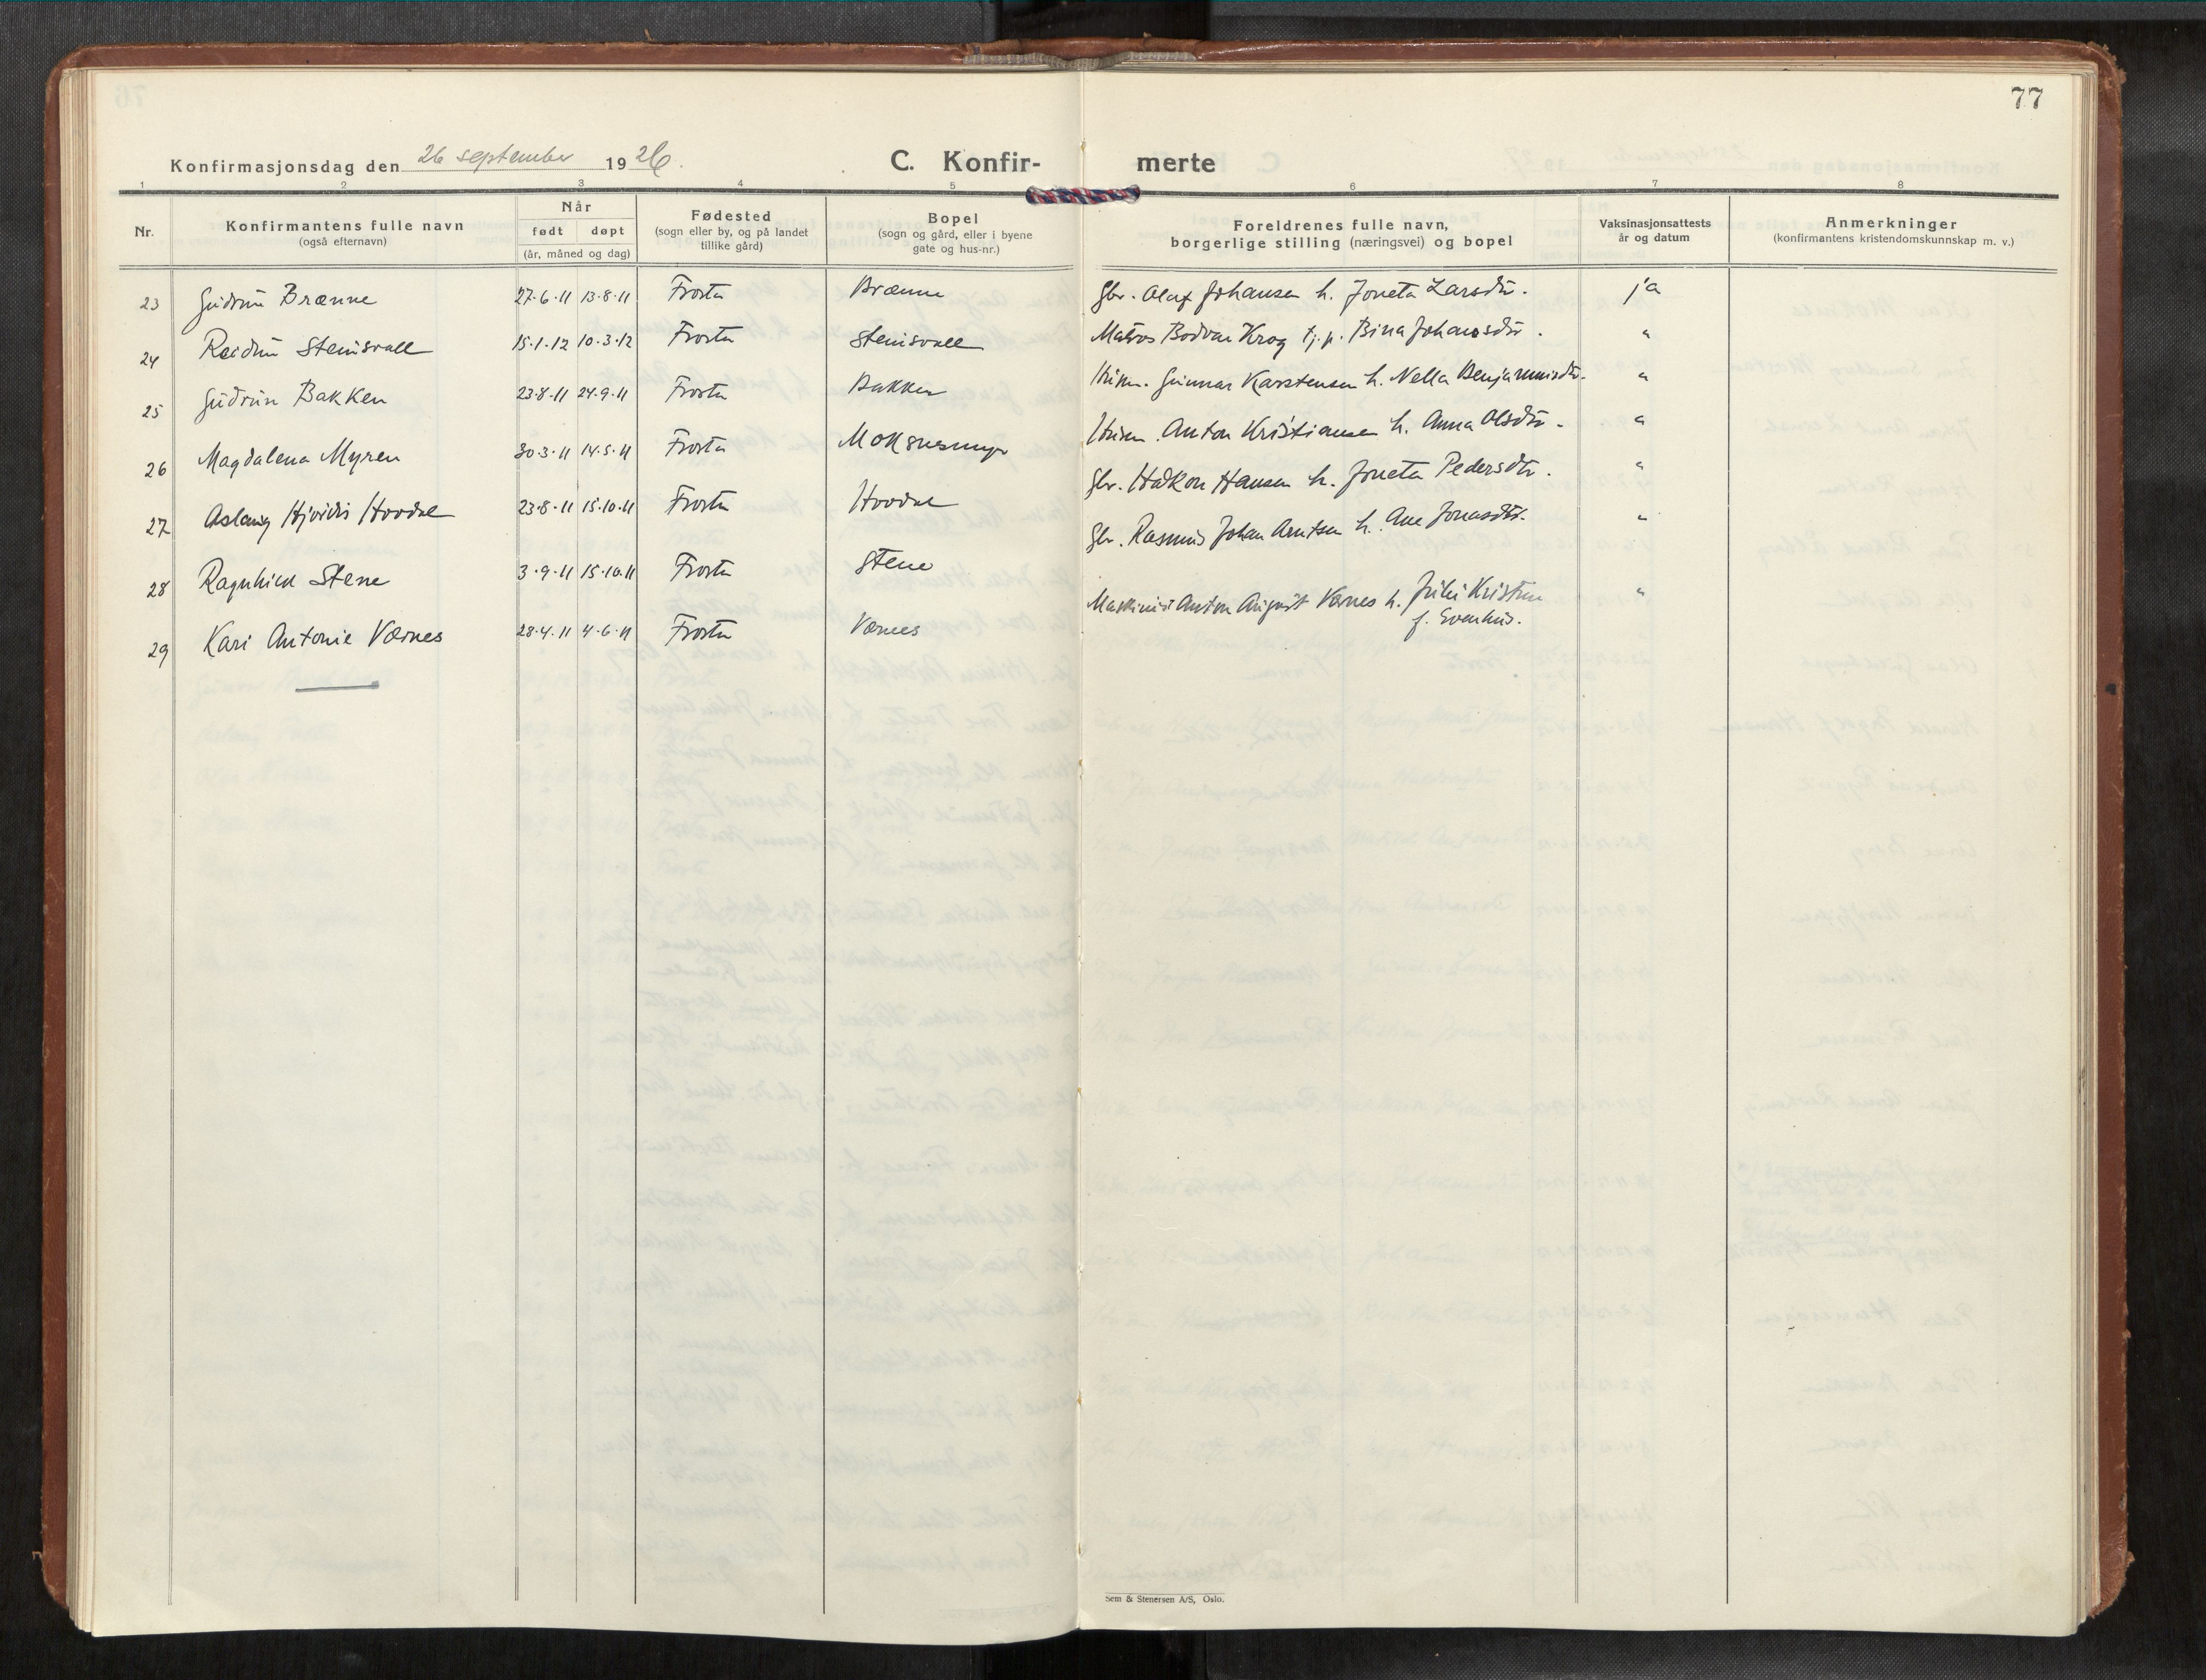 77
Konfirmasjonsdag den 26 september 1926.
C. Konfir-
merte
1 2 3 4 5 6 7 8
Nr.
Konfirmantens fulle navn
(også efternavn)
Når
født døpt
(år, måned og dag)
Fødested
(sogn eller by, og på landet
tillike gård)
Bopel
(sogn og gård, eller i byene
gate og hus-nr.)
Foreldrenes fulle navn,
borgerlige stilling (næringsvei) og bopel
Vaksinasjonsattests
år og datum
Anmerkninger
(konfirmantens kristendomskunnskap m. v.)
23 Gudrun Brænne 27.6.11 13.8.11 Frosta Brænne Gbr. Olaf Johansen h. Joneta Larsdtr. ja
24 Reidun Steinsvall 15.1.12 10.3.12 Frosta Steinsvall Matros Bodvar Krog tj.p. Bina Johansdtr. "
25 Gudrun Bakken 23.8.11 24.9.11 Frosta Bakken Husm. Gunnar Karstensen h. Nella Benjaminsdtr. "
26 Magdalena Myren 30.3.11 14.5.11 Frosta Moksnesmyr Husm. Anton Kristiansen h. Anna Olsdtr. "
27 Aslaug Hjørdis Hovdal 23.8.11 15.10.11 Frosta Hovdal Gbr. Håkon Hansen h. Joneta Pedersdtr. "
28 Ragnhild Stene 3.9.11 15.10.11 Frosta Stene Gbr. Rasmus Johan Arntsen h. Ane Jonasdtr. "
29 Kari Antonie Værnes 28.4.11 4.6.11 Frosta Værnes Maskinist Anton August Værnes h. Julie Kristine "
f. Evenhus.
Sem & Stenersen A/S, Oslo.